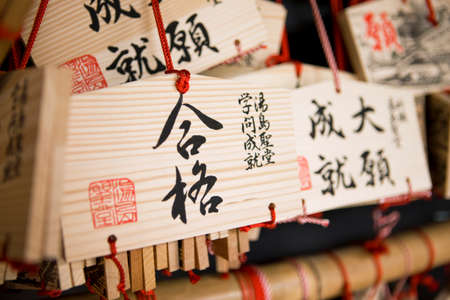 願
成就
合格
湯島聖堂
学問成就
大願
成就
願